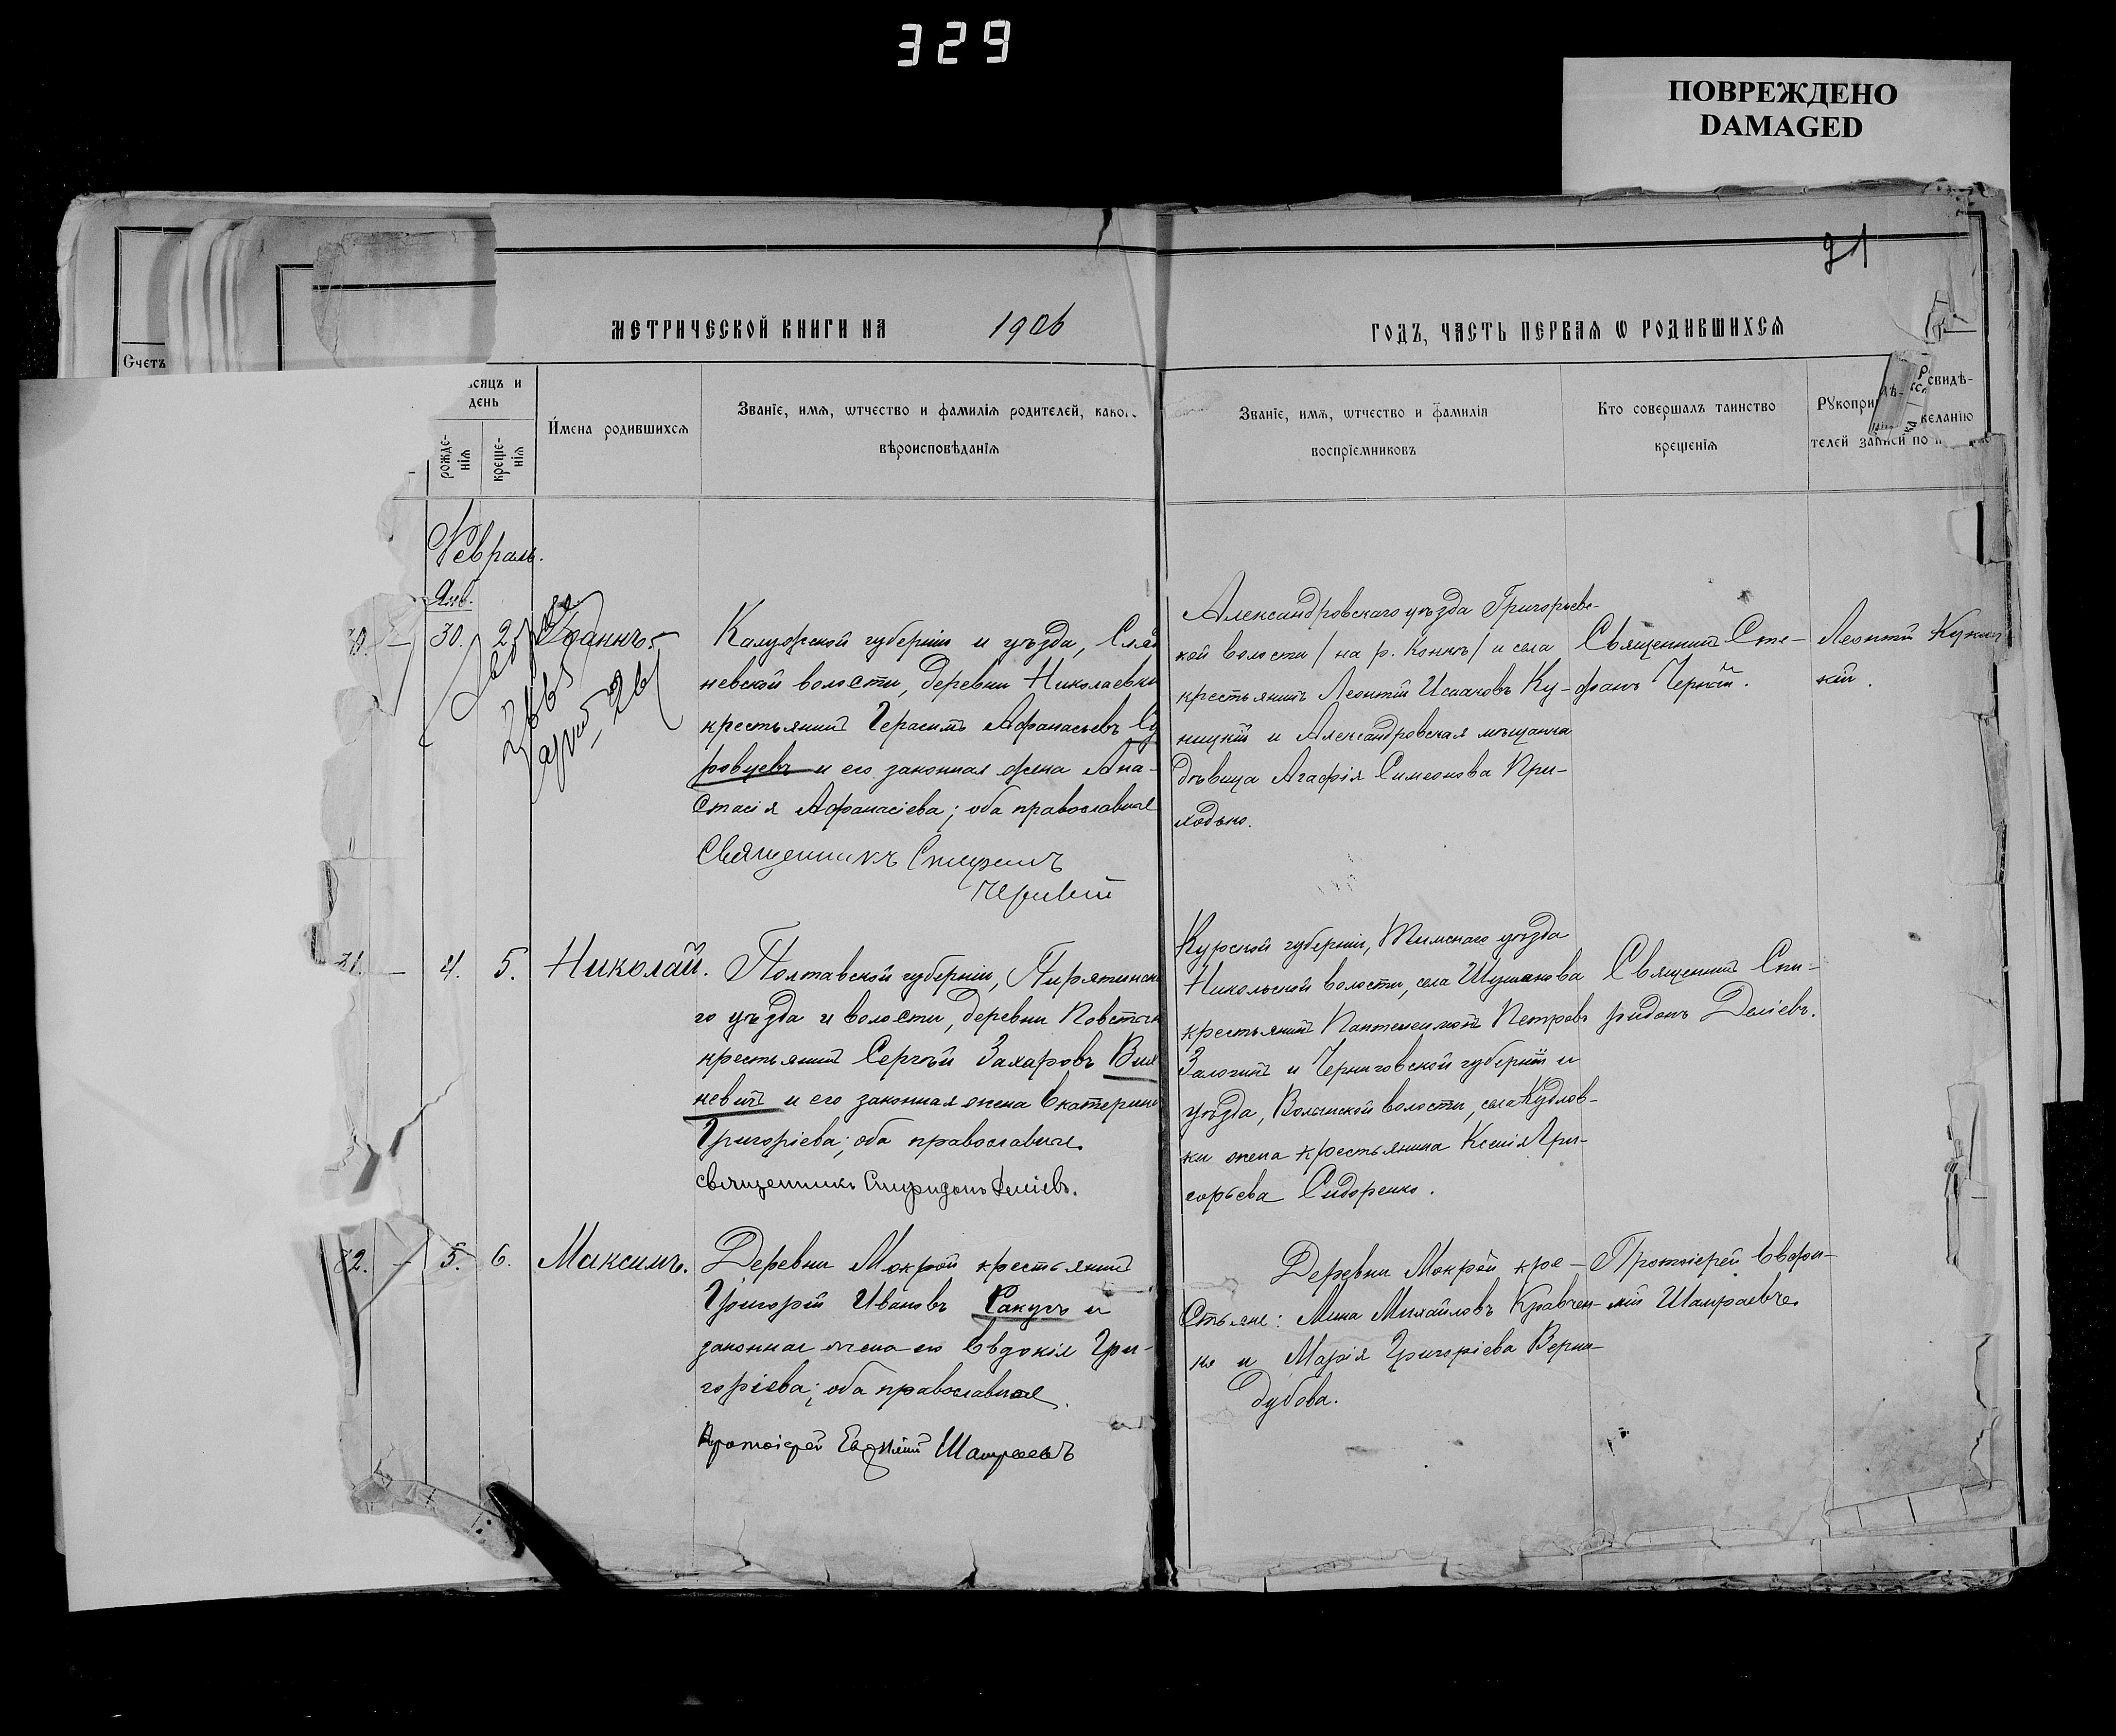 329
ПОВРЕЖДЕНО
DAMAGED
21
МЕТРИЧЕСКОЙ КНИГИ НА 1906 ГОДЪ, ЧАСТЬ ПЕРВАЯ Ѡ РОДИВШИХСЯ
Счетъ
день
рожде-
нія
креще-
нія
Имена родившихся
Званіе, имя, ѡтчество и фамилія родителей,
вѣроисповѣданія
Званіе, имя, ѡтчество и фамилія
воспріемниковъ
Кто совершалъ таинство
крещенія
свидѣ-
желанію
телей записи по
Февраль.
Янв.
30. 2. Іоаннъ.
Калужской губерніи и уѣзда,
невской волости, деревни Николаевки
крестьянинъ Герасимъ Афанасьевъ
ровцевъ и его законная жена Ана-
стасія Афанасіева; оба православные
Священникъ Стефанъ
Черный
Александровскаго уѣзда Григорьевс-
кой волости / на р. Конкѣ / и села
крестьянинъ Леонтій Исааковъ Ку-
ницкій и Александровская мѣщанка
дѣвица Агафія Симеонова При-
ходько.
Священникъ Сте-
фанъ Черный.
Леонтій
кій.
31. — 4. 5. Николай.
Полтавской губерніи, Пирятинска
го уѣзда и волости, деревни
крестьянинъ Сергѣй Захаровъ
невичъ и его законная жена Екатерина
Григоріева; оба православные.
Священникъ Спиридонъ Деліевъ.
Курской губерніи, Тимскаго уѣзда
Никольской волости, села
крестьянинъ Пантелеимонъ Петровъ
и Черниговской губерніи и
уѣзда, волости, села
ки жена крестьянина Ксенія Гри-
горьева Сидоренко.
Священникъ Спи-
ридонъ Деліевъ.
32. — 5. 6. Максимъ.
Деревни Мокрой крестьянинъ
Григорій Ивановъ и
законная жена его Евдокія Гри-
горіева; оба православные.
Протоіерей
Деревни Мокрой кре-
стьяне: Мина Михайловъ Кравчен-
ко и Марія Григоріева Верни-
дубова.
Протоіерей